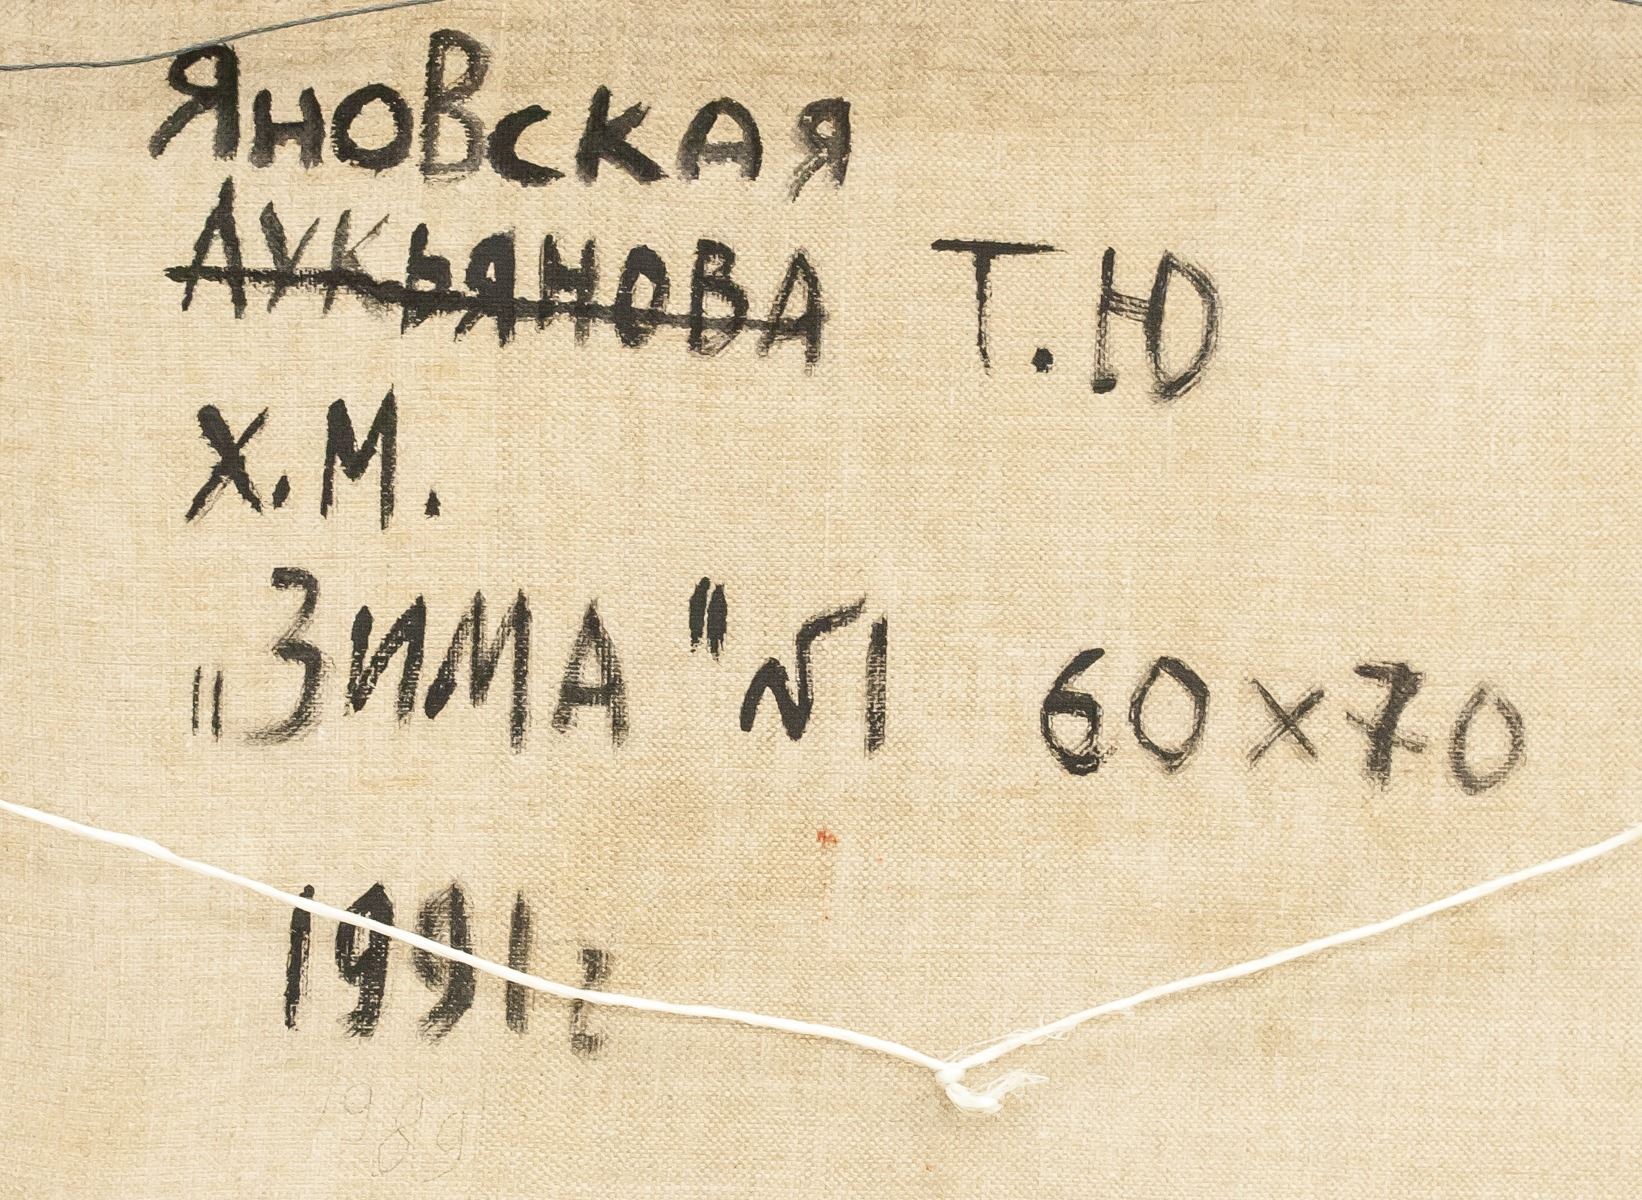 Яновская
Лукьянова Т.Ю
Х.М.
„Зима" №1 60×70
1991г
1989